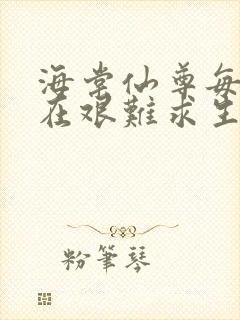 海棠仙尊每
在艰難求生
粉筆琴